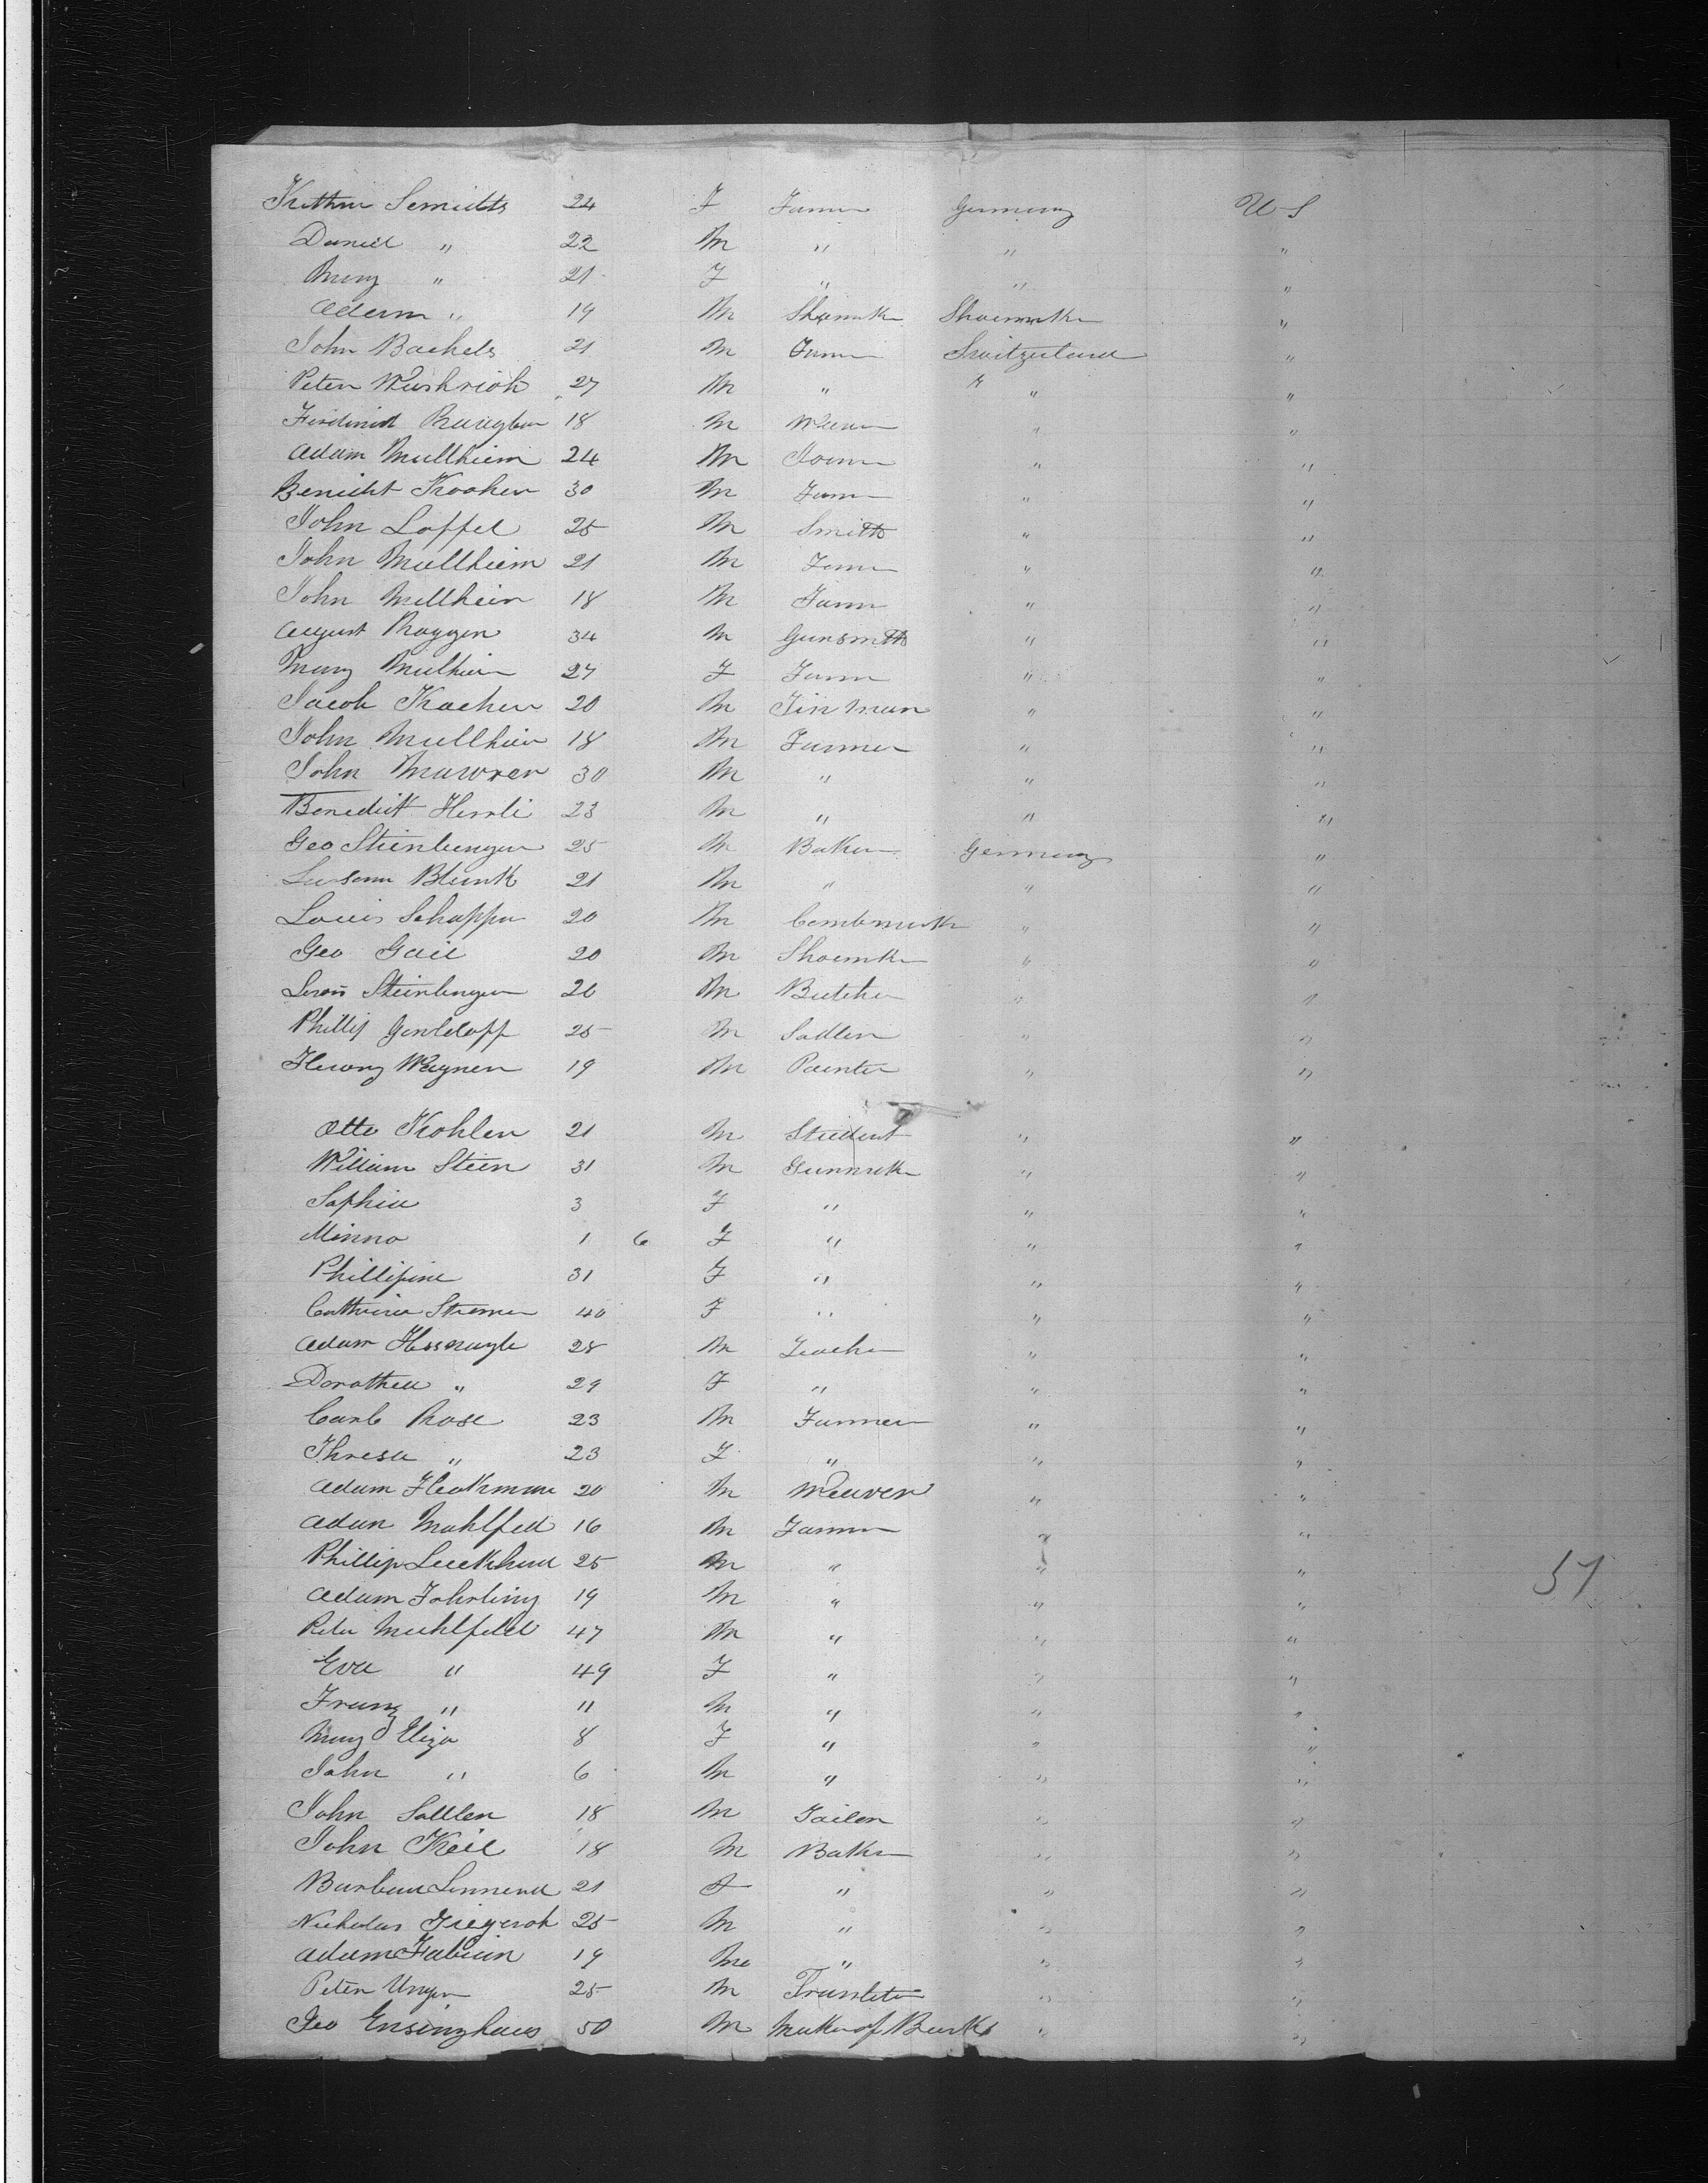 Kathrin Semidts 24 F Farmer Germany U-S
Daniel " 22 M " " "
Mary " 21 F " " "
Adam " 19 M Shoemaker Shoemaker "
John Bachels 21 M Farmer Switzerland "
Peter 27 M " " "
Ferdinand 18 M "  "
Adam Mullheim 24 M " "
Benicht Kocher 30 M Farmer " "
John Loffel 25 M Smith " "
John Mullheim 21 M Farmer " "
John Mullheim 18 M Farm " "
August Roggen 34 M Gunsmith " "
Mary Mulheim 27 F Farm " "
Jacob Kocher 20 M Tin man " "
John Mullheim 18 M Farmer " "
John Mawrer 30 M " " "
Benedict Herrli 23 M " " "
Geo Steinberger 25 M Baker Germany "
Blank 21 M " " "
Louis Schapper 20 M Combmak " "
Geo Gail 20 M Shoemk " "
Steinberger 26 M Butcher " "
Phillip 25 M Sadler " "
Henry Wagner 19 M Painter " "
Otto Kohler 21 M Student " "
William Stein 31 M Gunmak " "
Sophia 3 F " " "
Minna 1 6 F " " "
Phillipine 31 F " " "
Cathrina 40 F " " "
Adam Hessnagle 28 M Teacher " "
Dorothea " 29 F " " "
Carl Rose 23 M Farmer " "
Thresa " 23 F " " "
Adam Heckman 20 M Weaver " "
Adam Mahlfeld 16 M Farmer " "
Phillip Luckhard 25 M " " "
Adam Fohrling 19 M " " "
Peter Muhlfeld 47 M " " "
Eva " 49 F " " "
Franz " 11 M " " "
Mary Eliza 8 F " " "
John " 6 M " " "
John Sattler 18 M Tailor " "
John Keil 18 M Baker " "
Barbara 21 F " " "
Nicholas 25 M " " "
Adam Fabian 19 M " " "
Peter Unger 25 M " "
Geo Ensinghaus 50 M Maker of " "
57